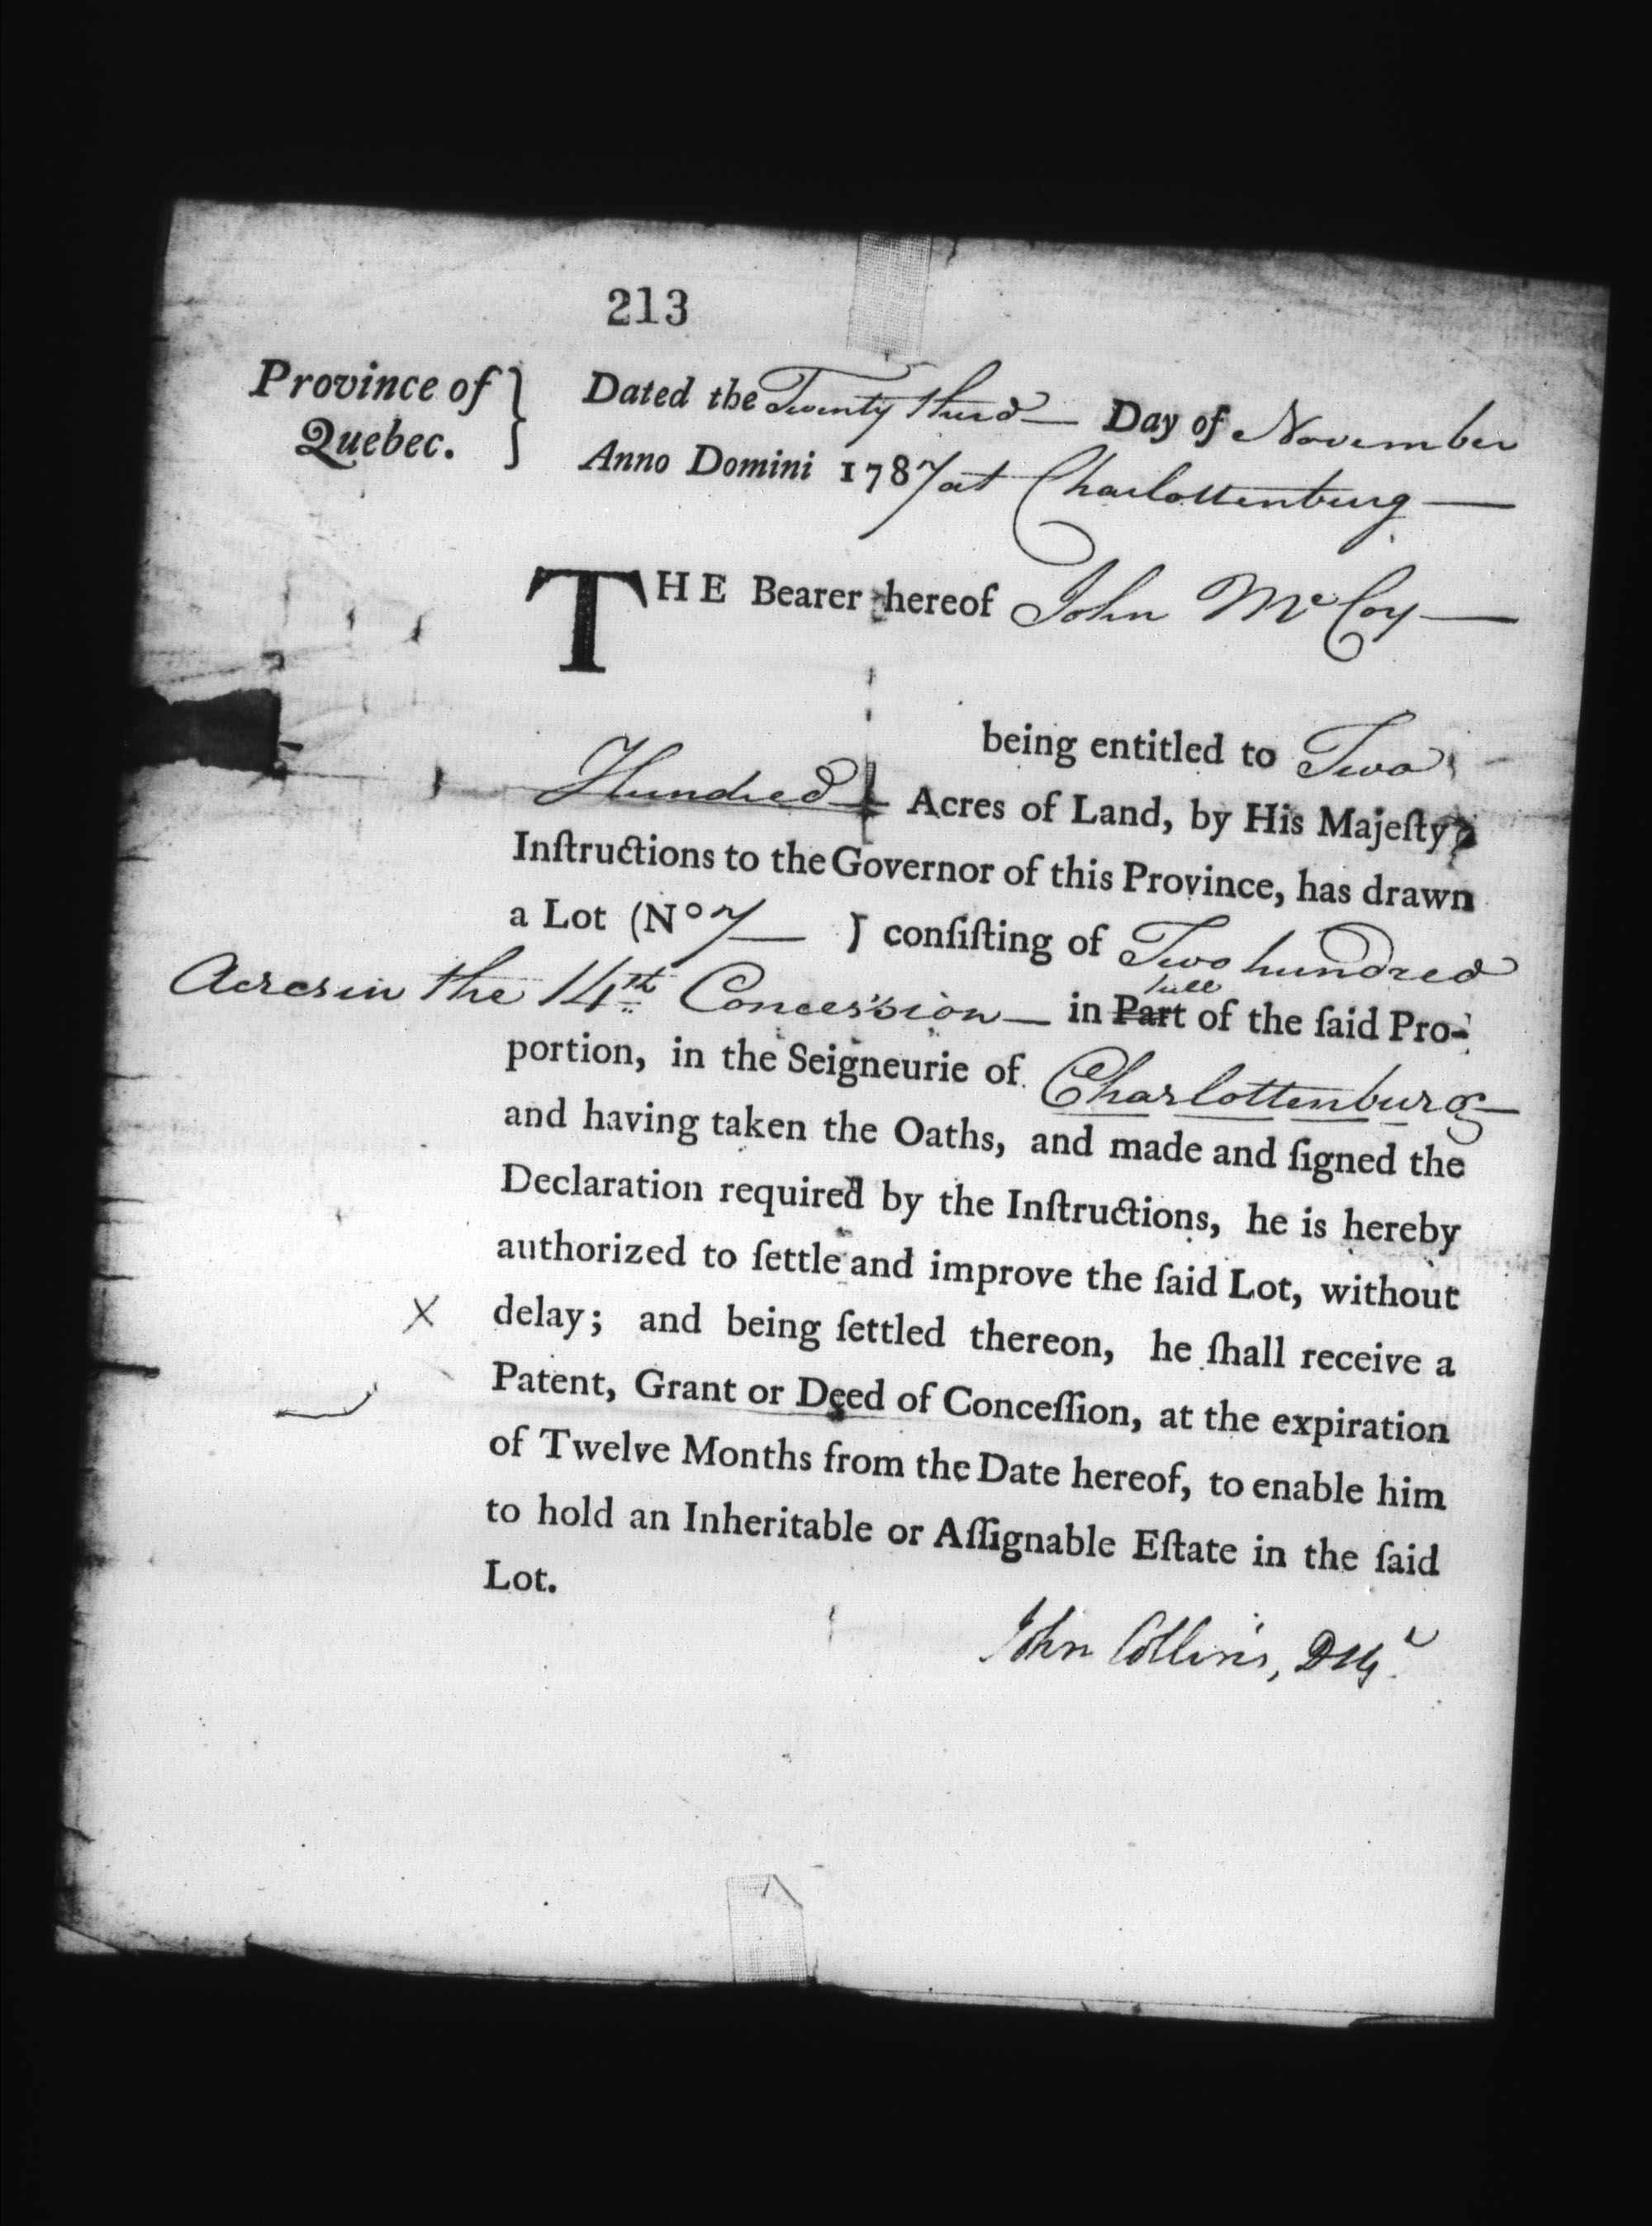 213
Province of Quebec. } Dated the Twenty third — Day of November
Anno Domini 1787 at Charlottenburg —
THE Bearer hereof John Mc Coy —
being entitled to Two
Hundred — Acres of Land, by His Majesty's
Inſtructions to the Governor of this Province, has drawn
a Lot (No 7 — ) conſiſting of Two hundred
Acres in the 14th Conceſsion — in Part full of the ſaid Pro-
portion, in the Seigneurie of Charlottenburg —
and having taken the Oaths, and made and ſigned the
Declaration required by the Inſtructions, he is hereby
authorized to ſettle and improve the ſaid Lot, without
X delay; and being ſettled thereon, he ſhall receive a
Patent, Grant or Deed of Conceſſion, at the expiration
of Twelve Months from the Date hereof, to enable him
to hold an Inheritable or Aſſignable Eſtate in the ſaid
Lot.
John Collins, D